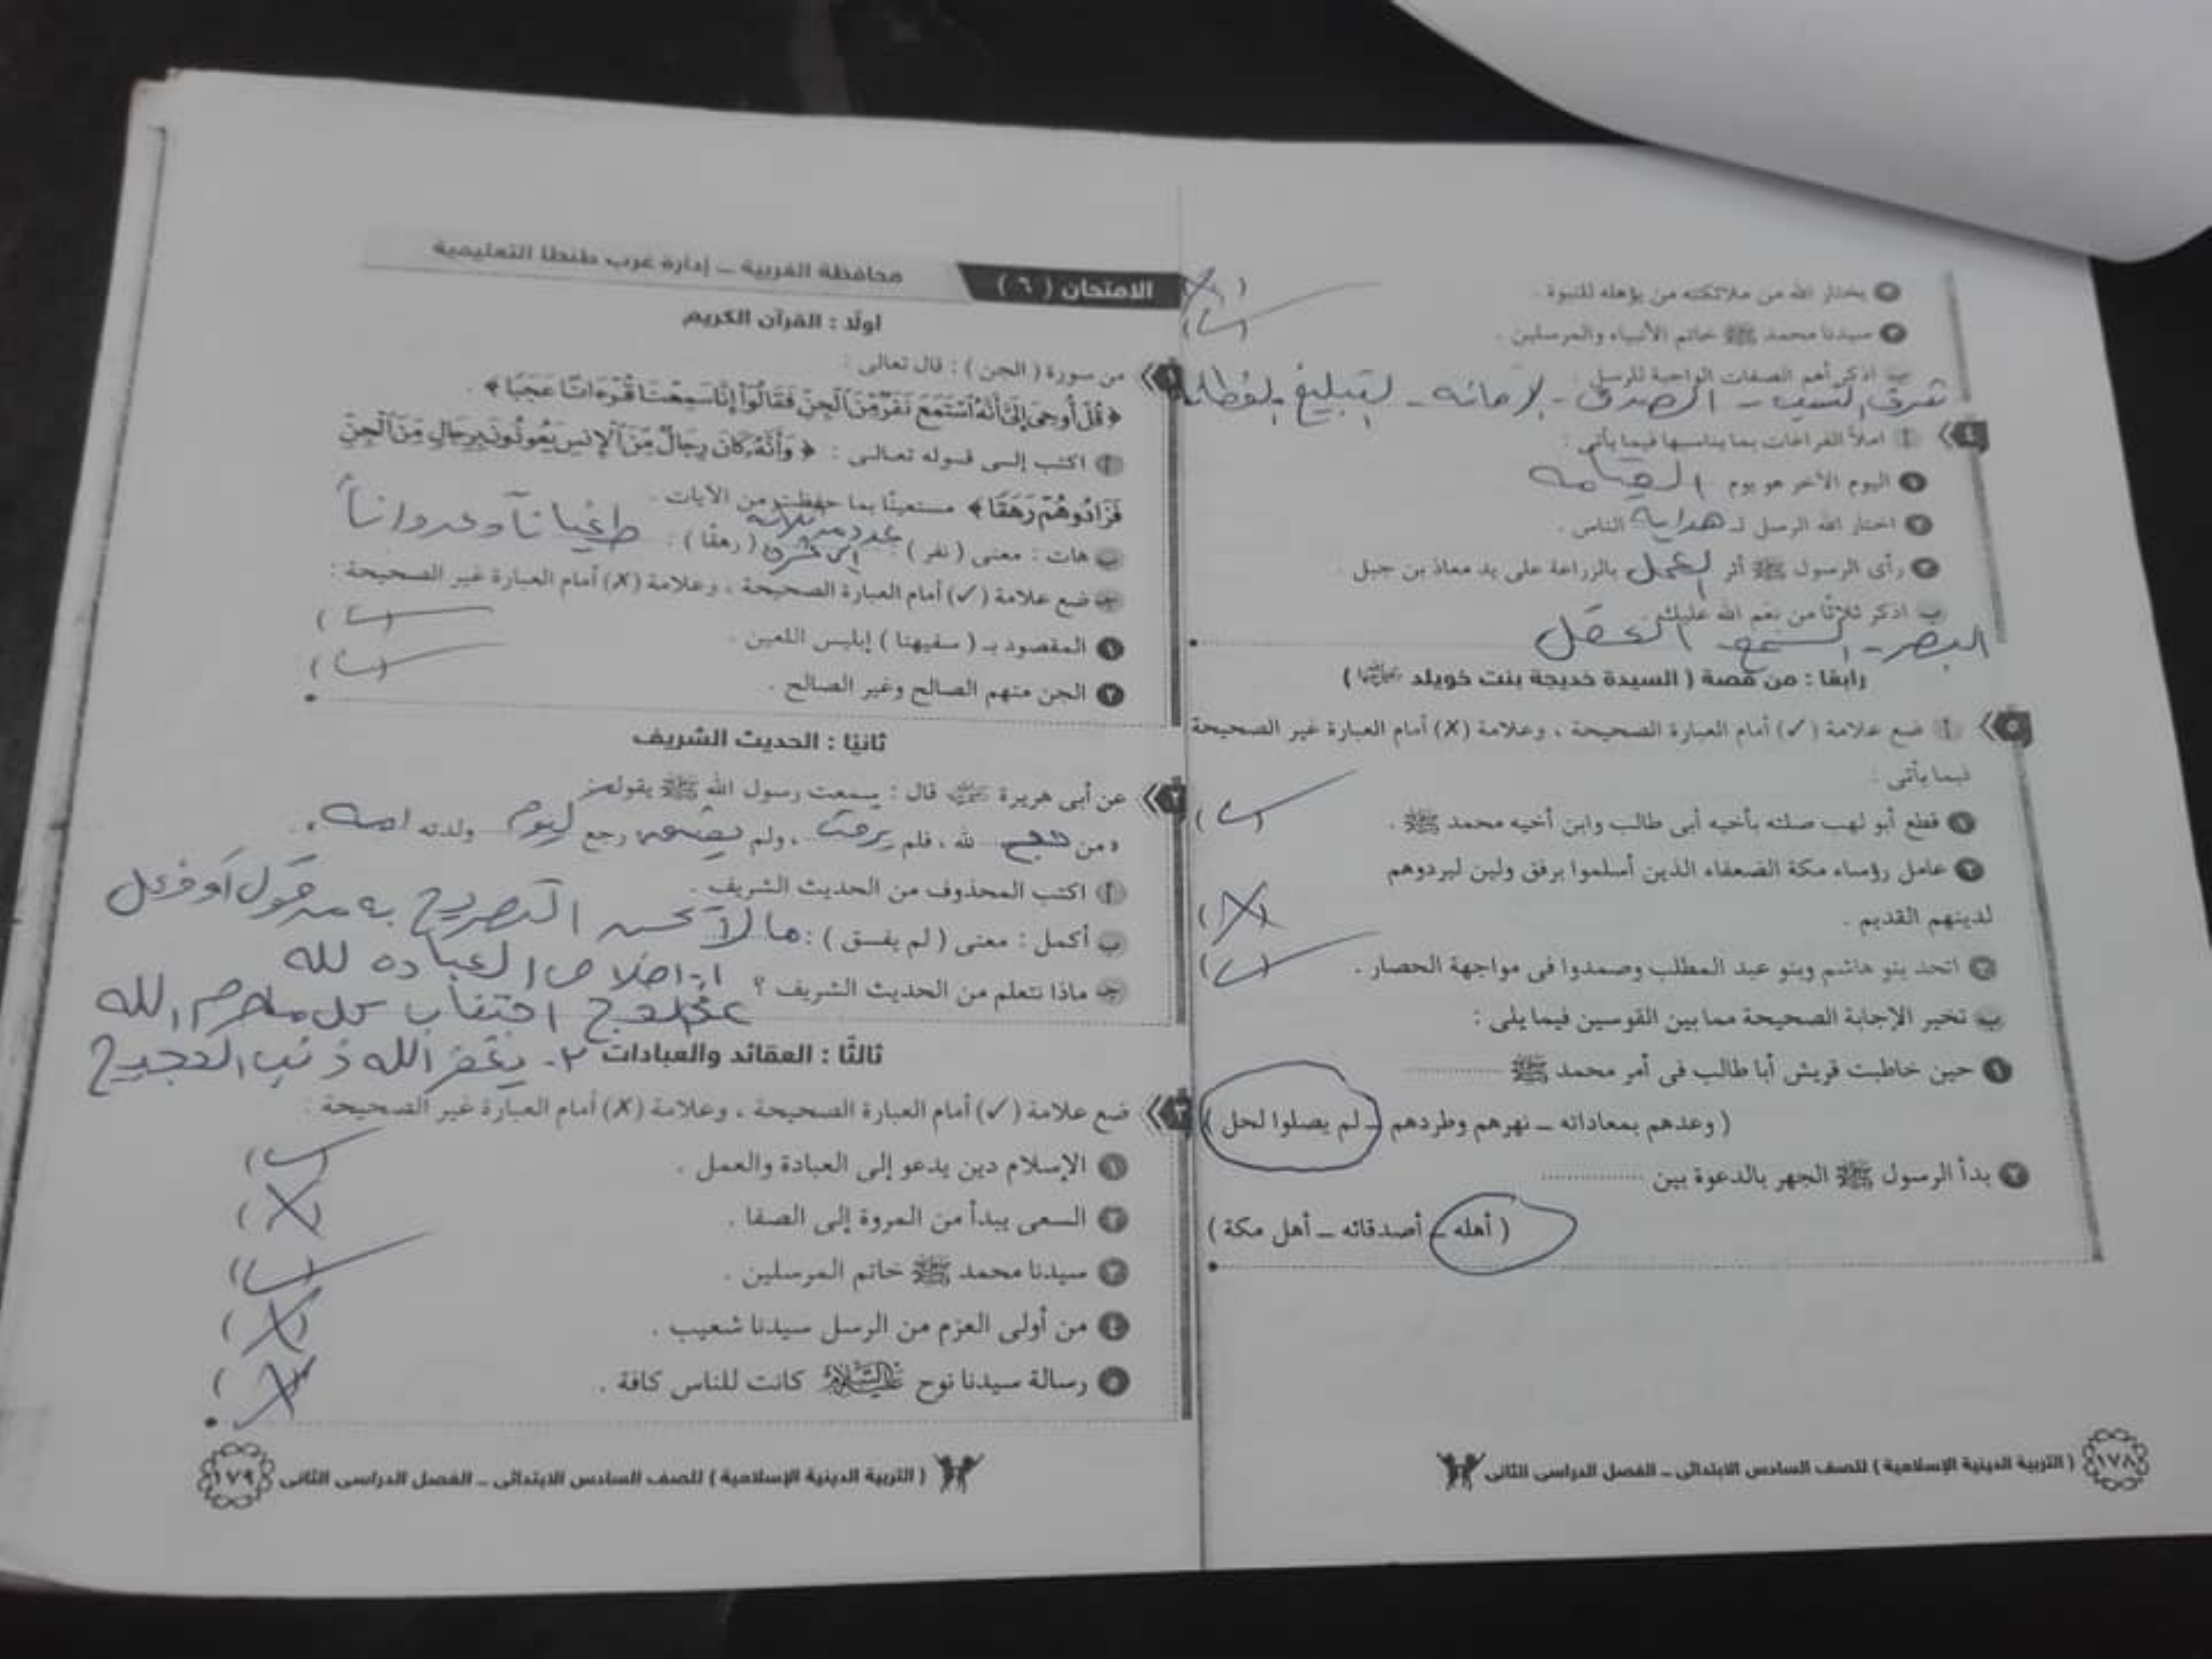 ٢ يختار الله من ملائكته من يؤهله للنبوة . ( X )
٣ سيدنا محمد ﷺ خاتم الأنبياء والمرسلين . ( ✓ )
ب اذكر أهم الصفات الواجبة للرسل .
شرف النسب - الصدق - الامانه - لتبليغ
٤ أ املأ الفراغات بما يناسبها فيما يأتى :
١ اليوم الآخر هو يوم القيامه
٢ اختار الله الرسل لـ هدايه الناس .
٣ رأى الرسول ﷺ أثر لعمل بالزراعة على يد معاذ بن جبل .
ب اذكر ثلاثًا من نعم الله عليك .
البصر - السمع - العقل
رابعًا : من قصة ( السيدة خديجة بنت خويلد )
٥ أ ضع علامة (✓) أمام العبارة الصحيحة ، وعلامة (X) أمام العبارة غير الصحيحة
فيما يأتى :
١ قطع أبو لهب صلته بأخيه أبى طالب وابن أخيه محمد ﷺ . ( ✓ )
٢ عامل رؤساء مكة الضعفاء الذين أسلموا برفق ولين ليردوهم
لدينهم القديم . ( X )
٣ اتحد بنو هاشم وبنو عبد المطلب وصمدوا فى مواجهة الحصار . ( ✓ )
ب تخير الإجابة الصحيحة مما بين القوسين فيما يلى :
١ حين خاطبت قريش أبا طالب فى أمر محمد ﷺ ............
( وعدهم بمعاداته – نهرهم وطردهم – لم يصلوا لحل )
٢ بدأ الرسول ﷺ الجهر بالدعوة بين ............
( أهله – أصدقائه – أهل مكة )
١٧٨ ( التربية الدينية الإسلامية ) للصف السادس الابتدائى – الفصل الدراسى الثانى
الامتحان ( ٦ ) محافظة الغربية – إدارة غرب طنطا التعليمية
أولًا : القرآن الكريم
١ من سورة ( الجن ) : قال تعالى :
﴿ قُلْ أُوحِىَ إِلَىَّ أَنَّهُ ٱسْتَمَعَ نَفَرٌ مِّنَ ٱلْجِنِّ فَقَالُوٓا۟ إِنَّا سَمِعْنَا قُرْءَانًا عَجَبًا ﴾ .
أ اكتب إلى قوله تعالى : ﴿ وَأَنَّهُۥ كَانَ رِجَالٌ مِّنَ ٱلْإِنسِ يَعُوذُونَ بِرِجَالٍ مِّنَ ٱلْجِنِّ
فَزَادُوهُمْ رَهَقًا ﴾ مستعينًا بما حفظت من الآيات .
ب هات : معنى ( نفر ) عدد من ثلاثة إلى عشرة ( رهقًا ) : طغياناً وعدواناً
جـ ضع علامة (✓) أمام العبارة الصحيحة ، وعلامة (X) أمام العبارة غير الصحيحة :
١ المقصود بـ ( سفيهنا ) إبليس اللعين . ( ✓ )
٢ الجن منهم الصالح وغير الصالح . ( ✓ )
ثانيًا : الحديث الشريف
٢ عن أبى هريرة قال : سمعت رسول الله ﷺ يقول :
« من حج لله ، فلم يرفث ، ولم يفسق رجع ليوم ولدته امه » .
أ اكتب المحذوف من الحديث الشريف .
ب أكمل : معنى ( لم يفسق ) : مالا يحسن التصريح به من قول أو فعل
جـ ماذا نتعلم من الحديث الشريف ؟ ١- اخلاص العباده لله
اجتناب كل ماحرم الله
ثالثًا : العقائد والعبادات ٢- يغفر الله ذنب الحجيج
٣ ضع علامة (✓) أمام العبارة الصحيحة ، وعلامة (X) أمام العبارة غير الصحيحة :
١ الإسلام دين يدعو إلى العبادة والعمل . ( ✓ )
٢ السعى يبدأ من المروة إلى الصفا . ( X )
٣ سيدنا محمد ﷺ خاتم المرسلين . ( ✓ )
٤ من أولى العزم من الرسل سيدنا شعيب . ( X )
٥ رسالة سيدنا نوح عليه السلام كانت للناس كافة . ( X )
( التربية الدينية الإسلامية ) للصف السادس الابتدائى – الفصل الدراسى الثانى ١٧٩